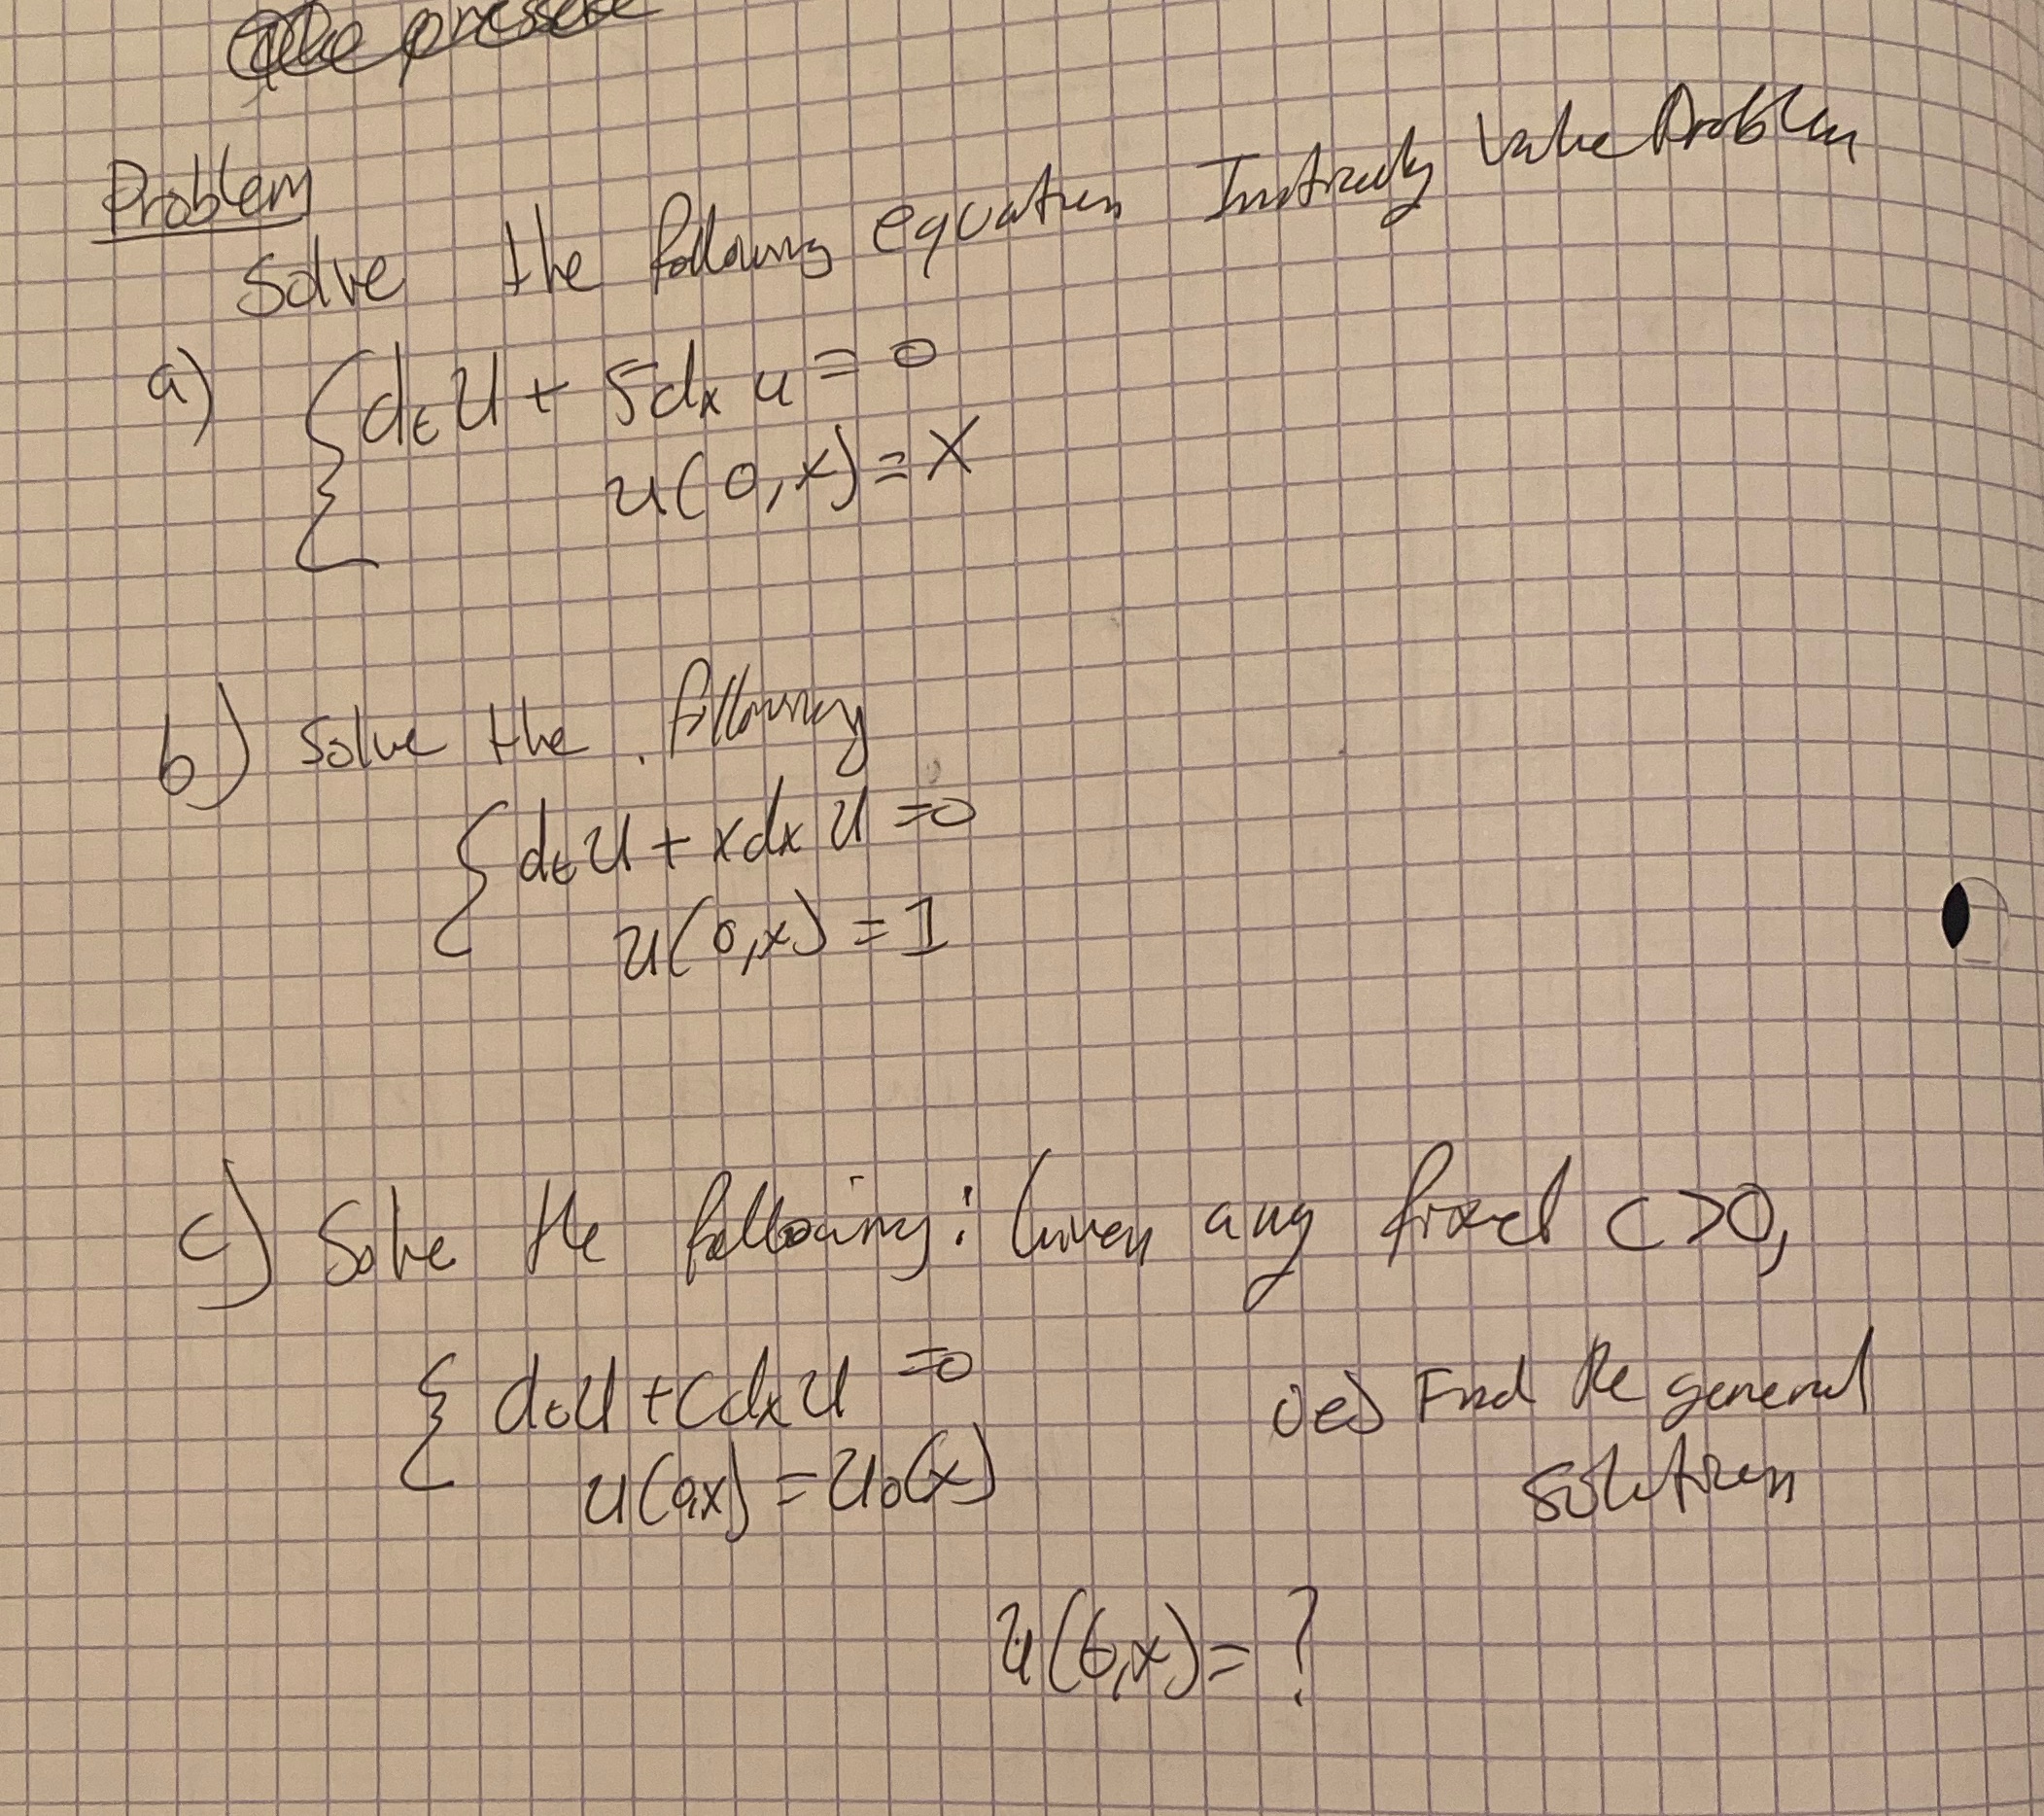 the pressure
Problem
Solve the following equation Value Problem
a) { dₜu + 5dₓu = 0
u(0,x) = x
b) Solve the following
{ dₜu + xdₓu = 0
u(0,x) = 1
c) Solve the following: Given any fixed c>0,
{ dₜu + cdₓu = 0
u(0,x) = u₀(x)
ie) Find the general
solution
u(t,x) = ?